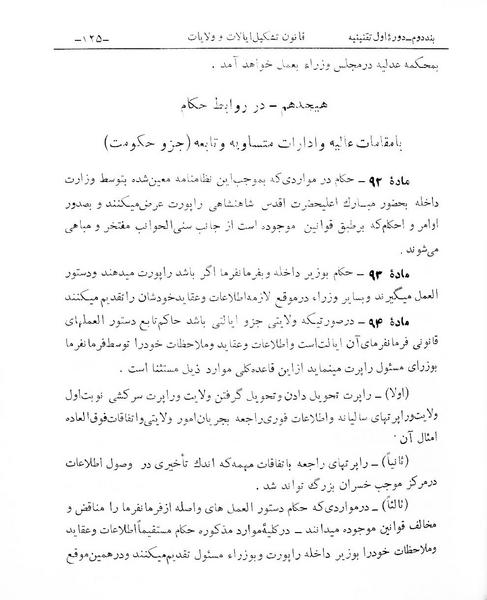 بند دوم ـ دورهٔ اول تقنینیه قانون تشکیل ایالات و ولایات ـ۱۲۵ـ
بمحکمه عدلیه در مجلس وزراء بعمل خواهد آمد .
هیجدهم ـ در روابط حکام
با مقامات عالیه و ادارات متساویه و تابعه (جزو حکومت)
مادهٔ ۹۲ ـ حکام در مواردی که بموجب این نظامنامه معین شده بتوسط وزارت
داخله بحضور مبارك اعلیحضرت اقدس شاهنشاهی راپورت عرض میکنند و بصدور
اوامر و احکام که بر طبق قوانین موجوده است از جانب سنی الجوانب مفتخر و مباهی
می شوند .
مادهٔ ۹۳ ـ حکام بوزیر داخله و بفرمانفرما اگر باشد راپورت میدهند و دستور
العمل میگیرند و بسایر وزراء در موقع لازمه اطلاعات و عقاید خودشان را تقدیم میکنند
مادهٔ ۹۴ ـ در صورتیکه ولایتی جزو ایالتی باشد حاکم تابع دستور العملهای
قانونی فرمانفرمای آن ایالت است و اطلاعات و عقاید و ملاحظات خود را توسط فرمانفرما
بوزرای مسئول راپرت مینماید از این قاعده کلی موارد ذیل مستثنا است .
(اولا) ـ راپرت تحویل دادن و تحویل گرفتن ولایت و راپرت سرکشی نوبت اول
ولایت و راپرتهای سالیانه و اطلاعات فوری راجعه بجریان امور ولایتی و اتفاقات فوق العاده
امثال آن .
(ثانیاً) ـ راپرتهای راجعه باتفاقات مهمه که اندك تأخیری در وصول اطلاعات
در مرکز موجب خسران بزرگ تواند شد .
(ثالثاً) ـ در مواردی که حکام دستور العمل های واصله از فرمانفرما را مناقض و
مخالف قوانین موجوده میدانند ـ در کلیهٔ موارد مذکوره حکام مستقیماً اطلاعات و عقاید
و ملاحظات خود را بوزیر داخله راپورت و بوزراء مسئول تقدیم میکنند و در همین موقع